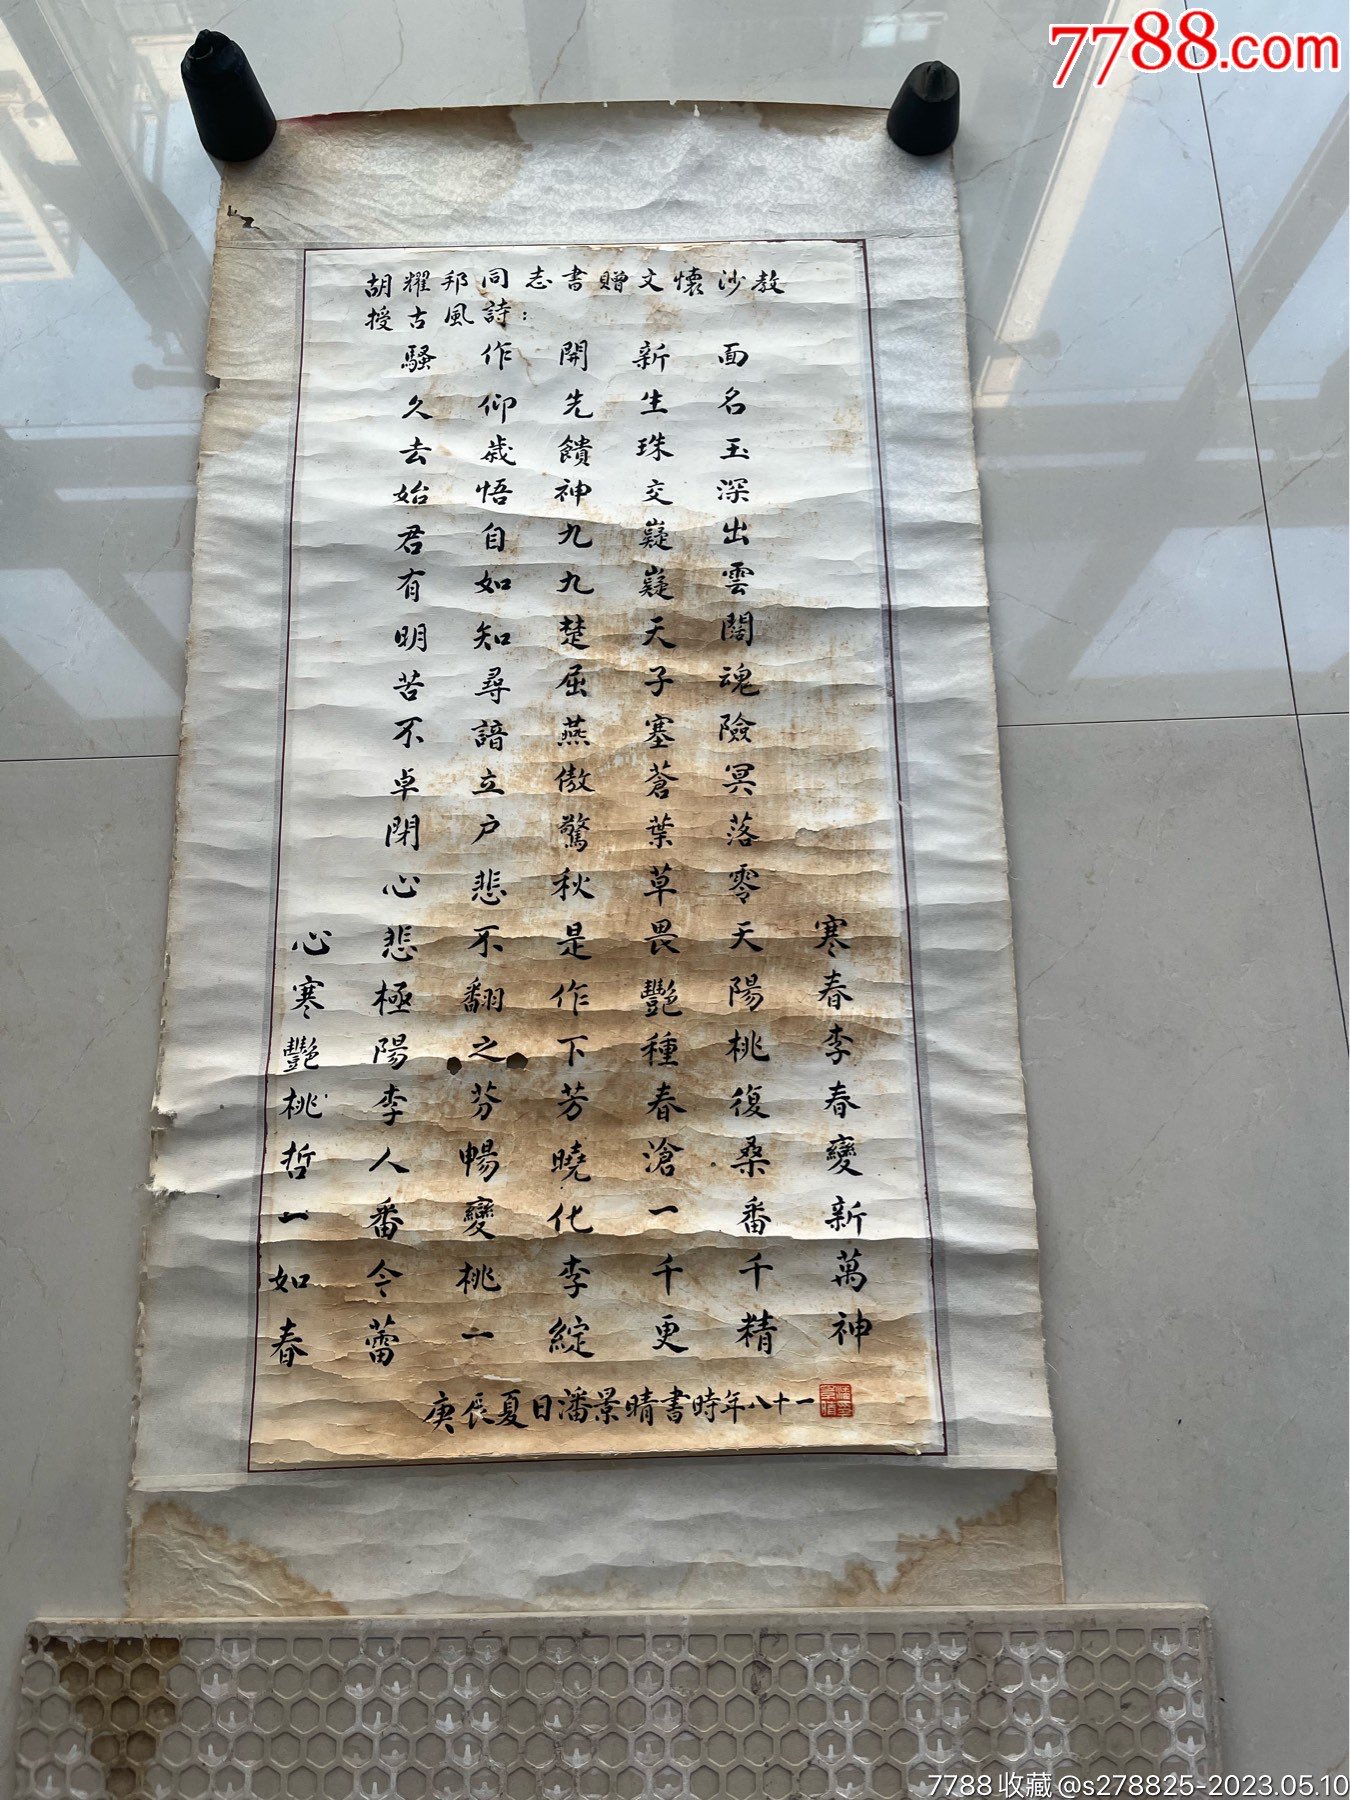 胡耀邦同志書贈文懷沙教
授古風詩：
騷作開新面
久仰先生名
去歲饋珠玉
始悟神交深
君自九嶷出
有如九嶷雲
明知楚天闊
苦尋屈子魂
不諳燕塞險
卓立傲蒼冥
閉户驚葉落
心悲秋草零
心悲不是畏天寒
寒極翻作艷陽春
艷陽之下種桃李
桃李芬芳春復春
哲人暢曉滄桑變
一番變化一番新
如今桃李千千萬
春蕾一綻更精神
庚辰夏日潘景晴書時年八十一
7788.com
7788收藏@s278825-2023.05.10